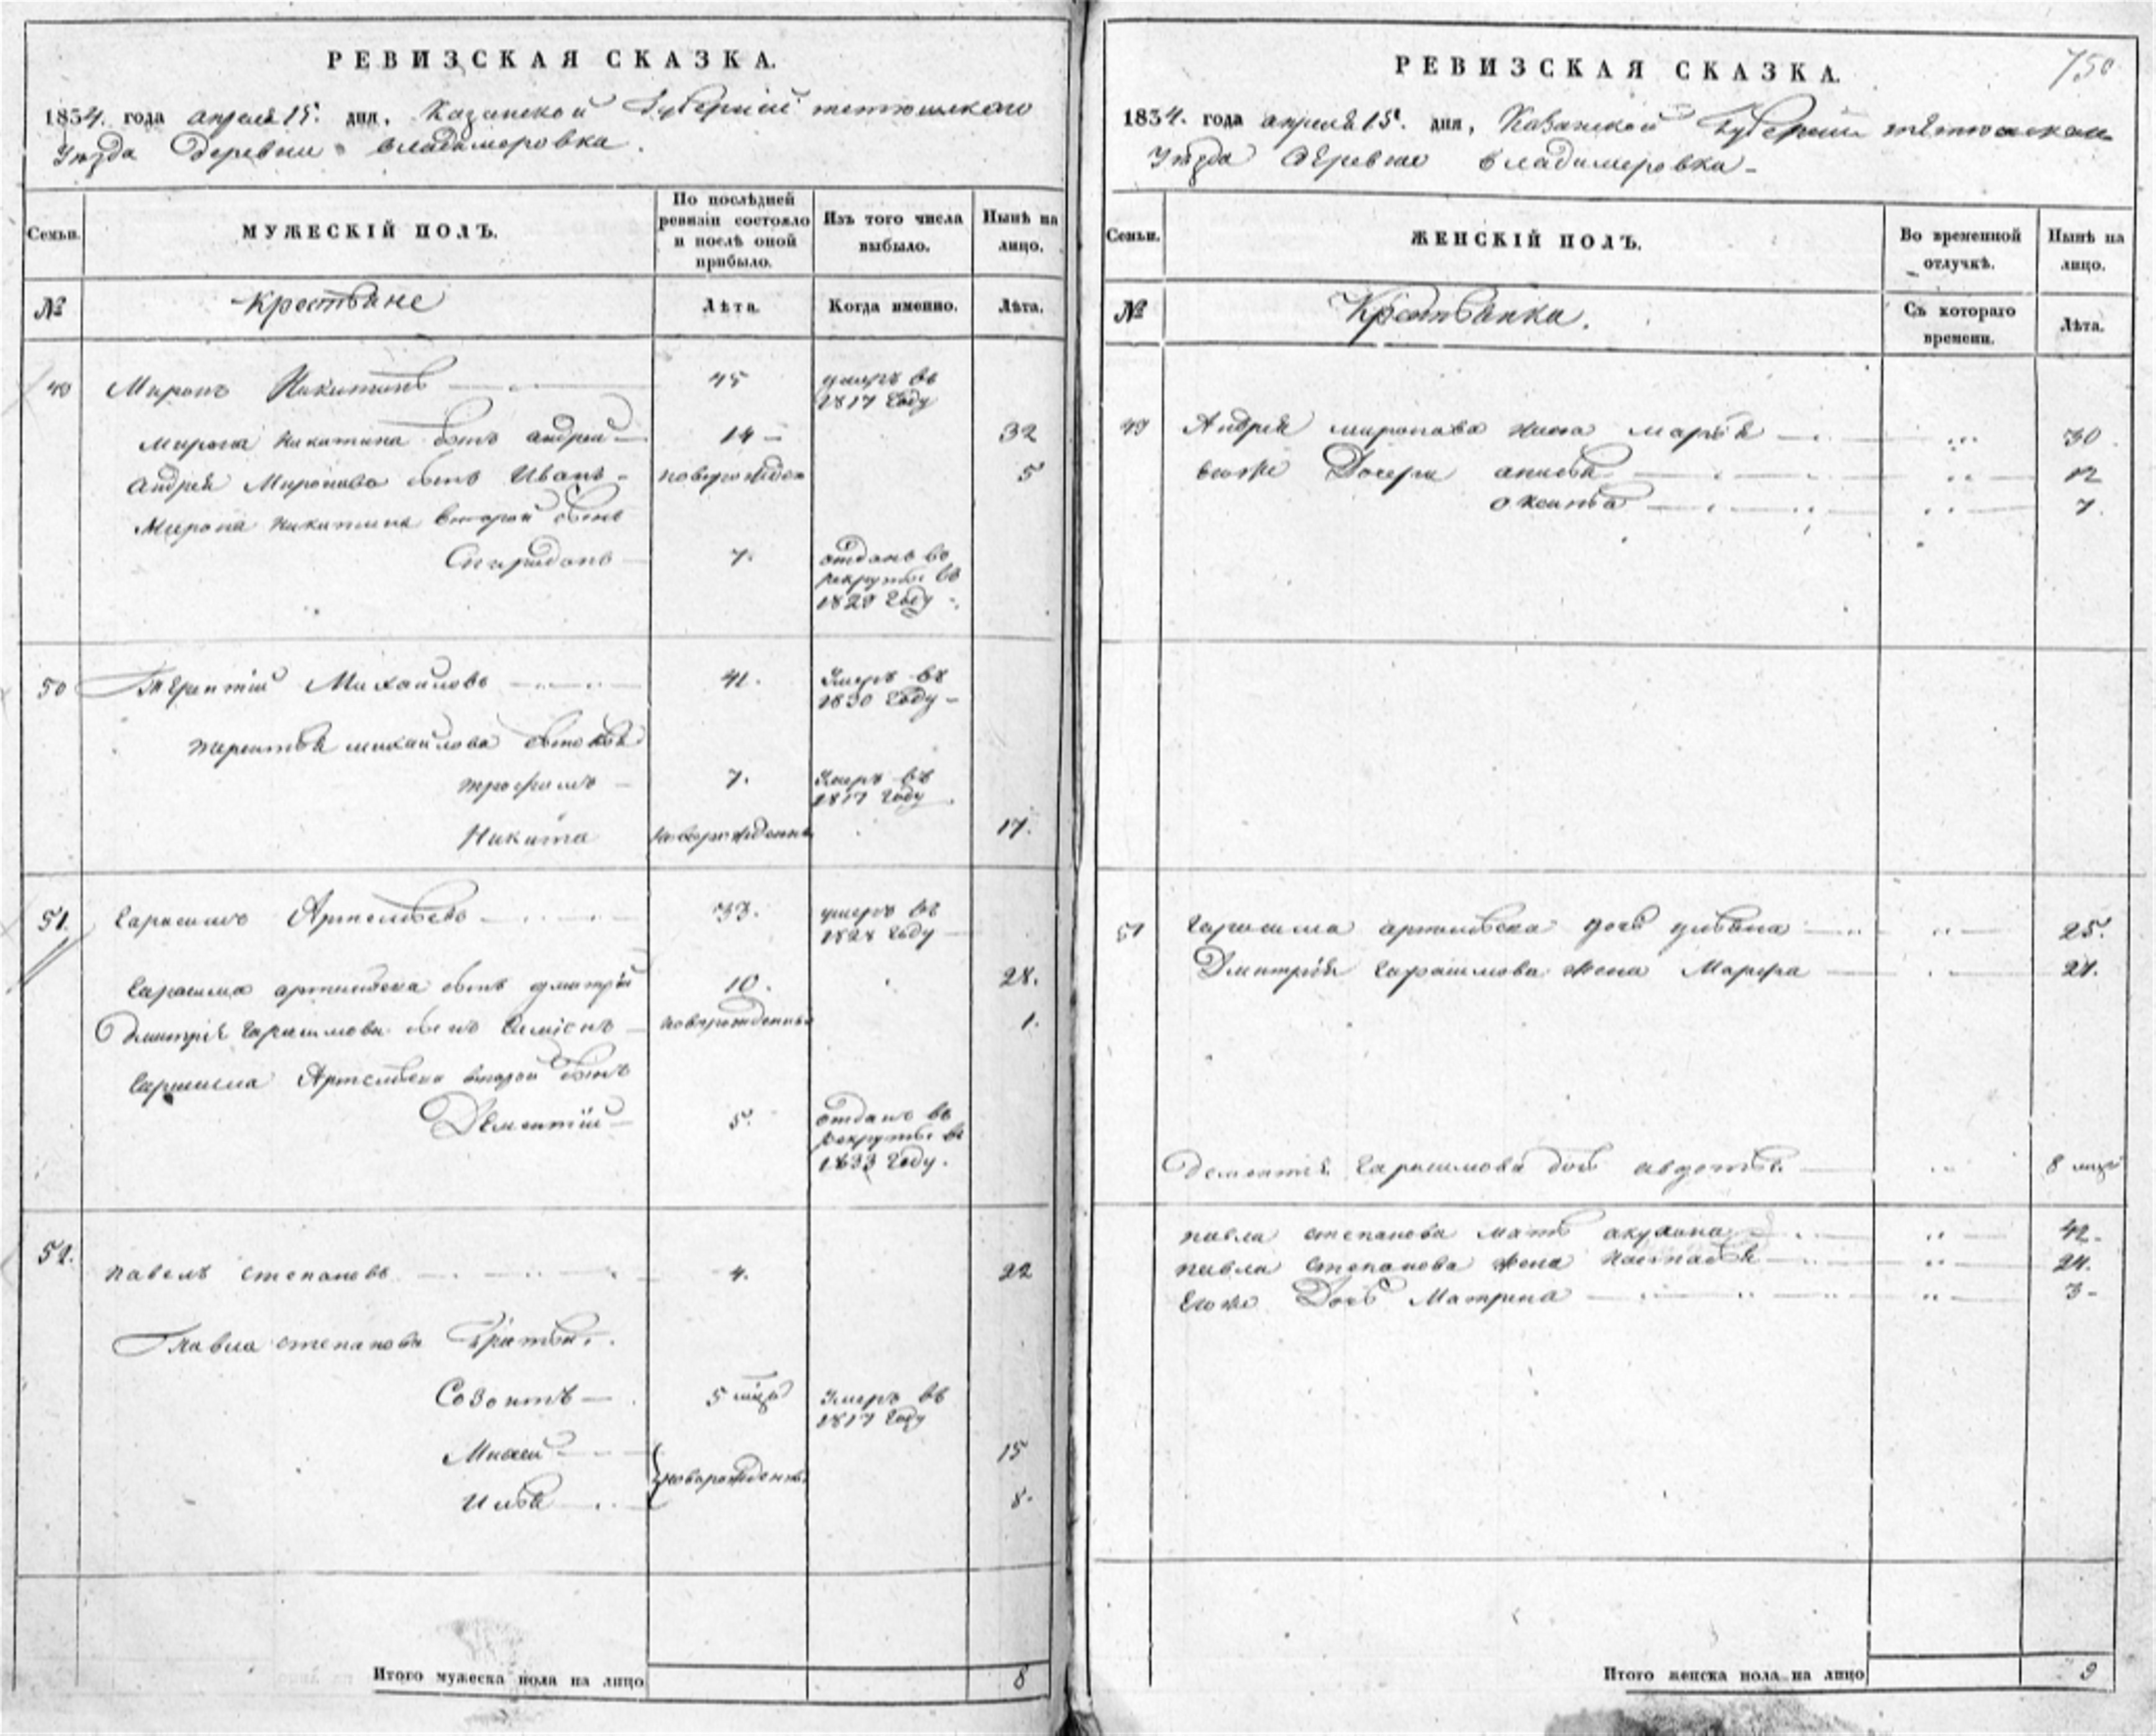 РЕВИЗСКАЯ СКАЗКА.
1834. года апреля 15. дня, Казанской Губернии тетюшского
Уезда деревни Владимеровка.
Семьи.
МУЖЕСКІЙ ПОЛЪ.
По послѣдней
ревизіи состояло
и послѣ оной
прибыло.
Изъ того числа
выбыло.
Нынѣ на
лицо.
№
Крестьяне
Лѣта.
Когда именно.
Лѣта.
49 Миронъ Никитинъ 45 умеръ въ
1817 году
Мирона Никитина сынъ андрей 14 32
Андрея Миронова сынъ Иванъ новорожден 5
Мирона Никитина второй сынъ
Спиридонъ 7. отданъ въ
рекруты въ
1829 году
50 Терентій Михайловъ 41. Умеръ въ
1830 году
терентья михайлова сыновья
трофимъ 7. Умеръ въ
1817 году.
Никита новорожденны 17.
51. Гарасимъ Артемьевъ 33. умеръ въ
1828 году
Гарасима артемьева сынъ дмитрій 10. 28.
Дмитрія Гарасимова сынъ Семіонъ новорожденны 1.
Гарасима Артемьева второй сынъ
Дементій 5. отданъ въ
рекруты въ
1833 году.
52. павелъ степановъ 4. 22
Павла степанова братья.
Созонтъ 5 мѣся Умеръ въ
1817 году
Михей 15
новорожденны
Илья 8.
Итого мужеска пола на лицо 8
750
РЕВИЗСКАЯ СКАЗКА.
1834. года апреля 15. дня, Казанской Губернии тетюшскаго
Уезда деревне Владимеровка
Семьи.
ЖЕНСКІЙ ПОЛЪ.
Во временной
отлучкѣ.
Нынѣ на
лицо.
№
Крестьянки.
Съ котораго
времени.
Лѣта.
49 Андрея миронова жена марья 30.
евоже дочери анисья 12
оксинья 7.
51 Гарасима артемьева дочь ульяна 25.
Дмитрія Гарасимова жена Марфа 21.
Дементія Гарасимова дочь авдотья 8 мѣся
павла степанова мать акулина 42.
павла степанова жена настасья 24.
Евоже дочь Матрена 3
Итого женска пола на лицо 9